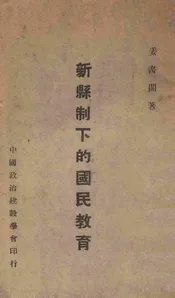 姜書閣著
新縣制下的國民教育
中國政治建設學會印行